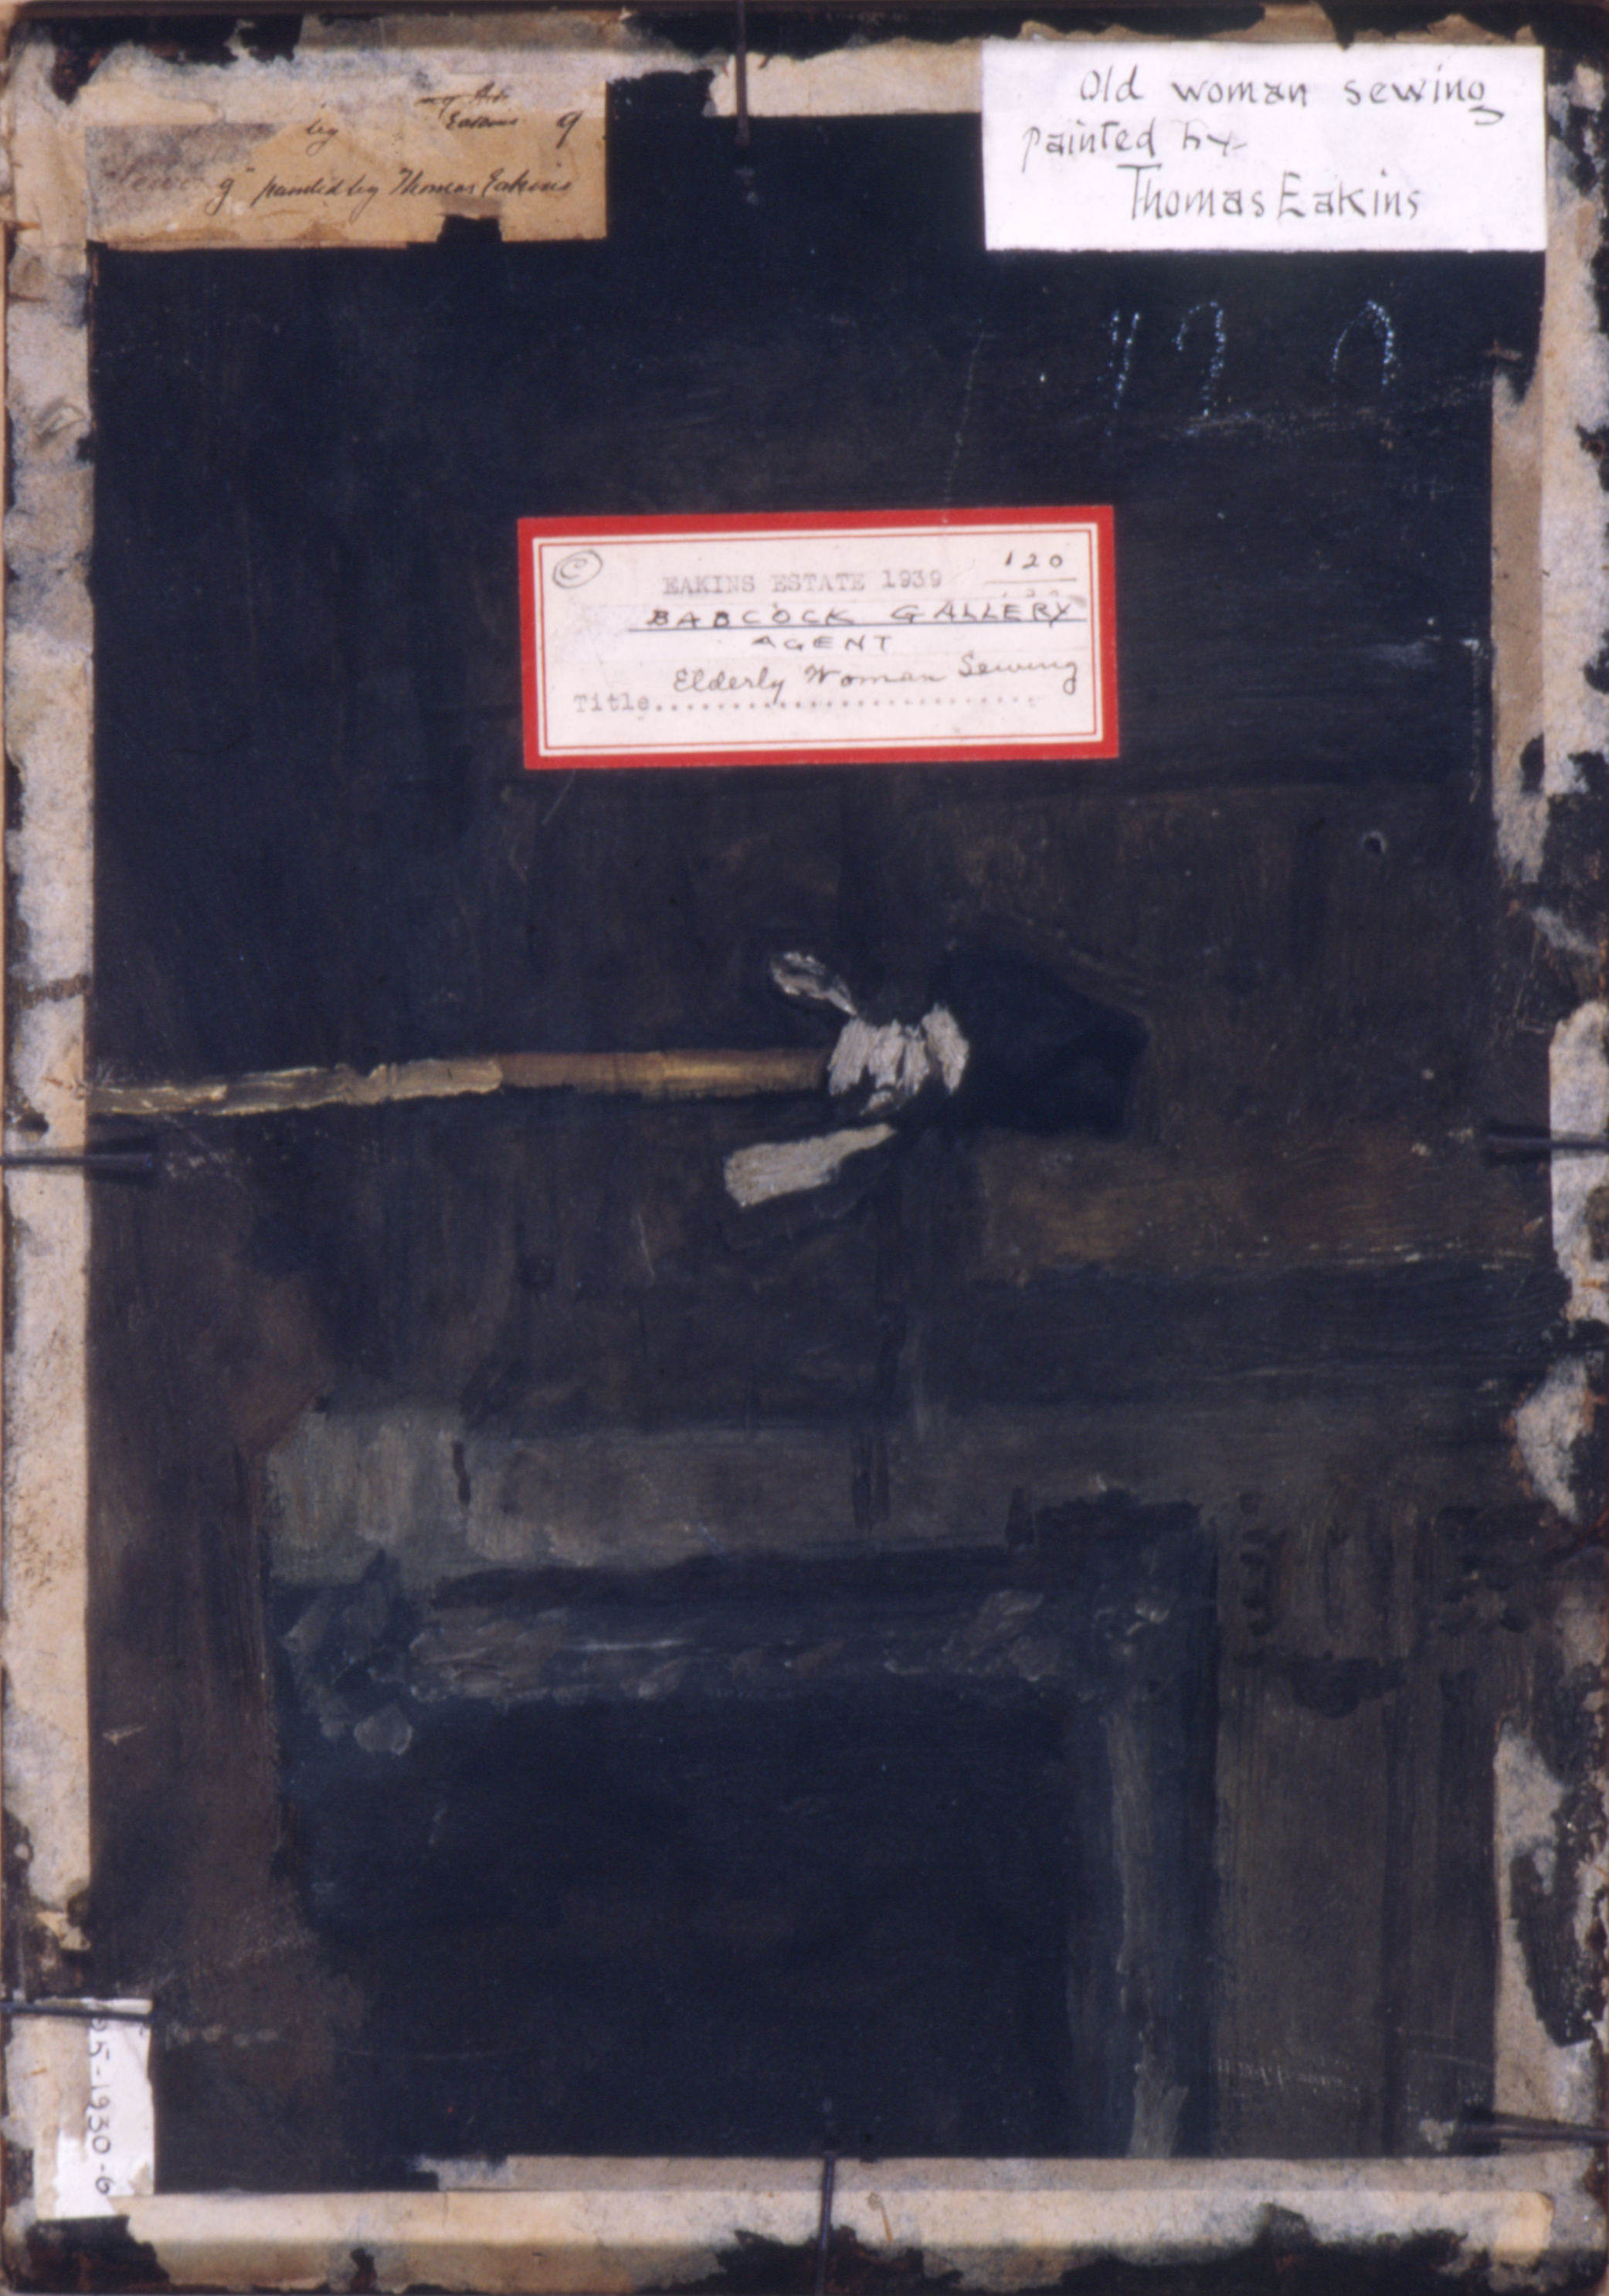 by Eakins 9
g" painted by Thomas Eakins
Old woman sewing
painted by
Thomas Eakins
©
120
EAKINS ESTATE 1939
BABCOCK GALLERY
AGENT
Elderly Woman Sewing
Title
25-1930-6